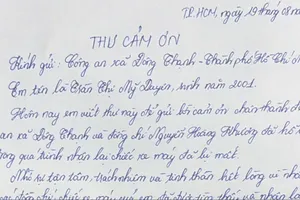 TP.HCM, ngày 19 tháng 08 n
THƯ CẢM ƠN
Kính gửi: Công an xã Đông Thạnh - Thành phố Hồ Chí
Em tên là Trần Thị Mỹ Duyên, sinh năm 2001.
Hôm nay em viết thư này để gửi lời cảm ơn chân thành đ
an xã Đông Thạnh và đồng chí Nguyễn Hoàng Phương đã hỗ t
trong quá trình nhận lại chiếc xe máy đã bị mất.
Nhờ sự tận tâm, trách nhiệm và tinh thần hết lòng vì nhâ
chiếc xe máy của em đã được tìm thấy và nhận l